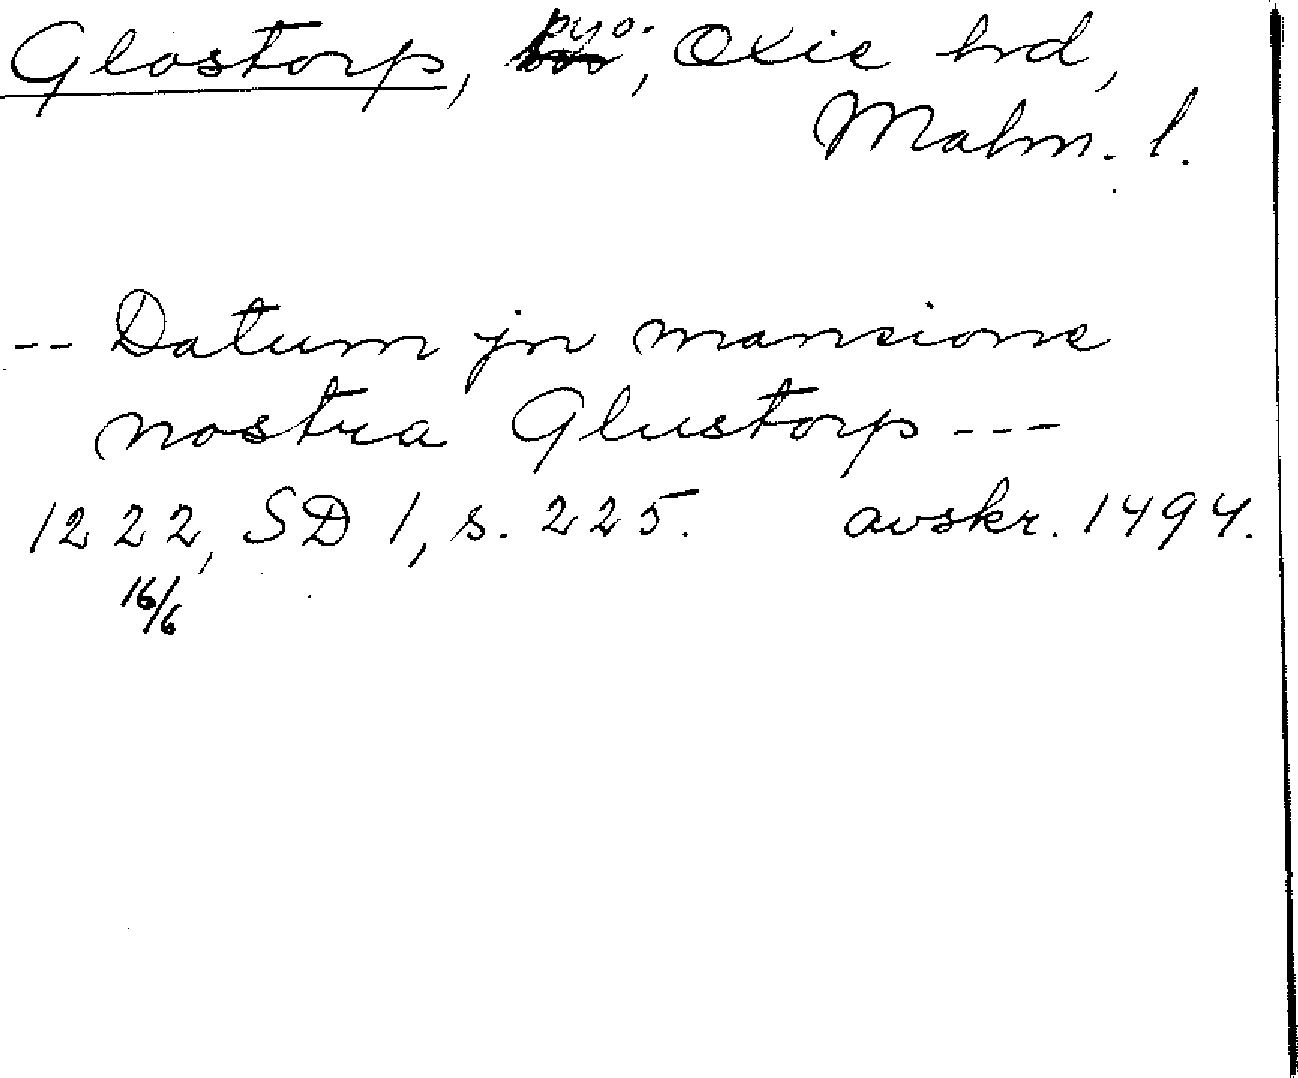 Glostorp, by o., Oxie hd,
Malm. l.
-- Datum jn mansione
nostra Glustorp ---
1222, SD 1, s. 225. avskr. 1494.
16/6